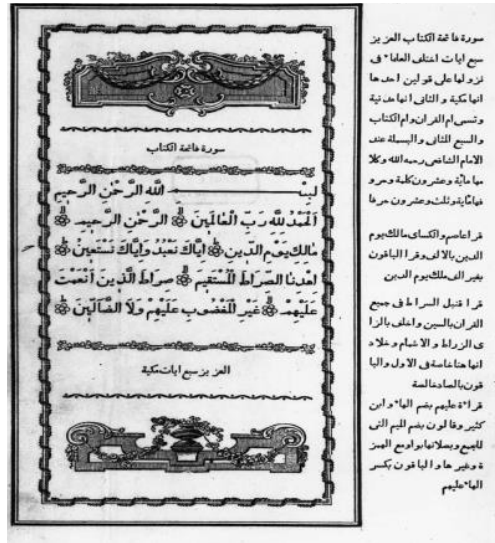 سورة فاتحة الكتاب
بسم الله الرَّحْمٰنِ الرَّحيمِ
اَلْحَمْدُ لِلّٰهِ رَبِّ الْعَالَمِينَ الرَّحْمٰنِ الرَّحِيمِ
مَالِكِ يَوْمِ الدِّينِ اِيَّاكَ نَعْبُدُ وَاِيَّاكَ نَسْتَعِينُ
اِهْدِنَا الصِّرَاطَ الْمُسْتَقِيمَ صِرَاطَ الَّذِينَ اَنْعَمْتَ
عَلَيْهِمْ غَيْرِ الْمَغْضُوبِ عَلَيْهِمْ وَلَا الضَّالِّينَ
العزيز سبع ايات مكية
سورة فاتحة الكتاب العزيز
سبع ايات اختلف العلماء في
نزولها على قولين احدها
انها مكية و الثاني انها مدنية
وتسمى ام القران وام الكتاب
والسبع المثاني والبسملة عند
الامام الشافعي رحمه الله وكلا
مها ماية وعشرون كلمة وحرو
فها ماية وثلث وعشرون حرفا
قرا عاصم والكساى مالك يوم
الدين بالالف وقرا الباقون
بغير الف ملك يوم الدين
قرا قنبل السراط فى جميع
القران بالسين وخلف بالزا
ى الزراط و الاشمام وخلاد
انها هنا خاصة فى الاول والبا
قون بالصاد خالصة
قراءة عليهم بضم الهاء وابن
كثير وقالون بضم الميم التى
للجمع وبصلانها بواو مع الهمز
ة وغيرها والباقون بكسر
الهاء عليهم